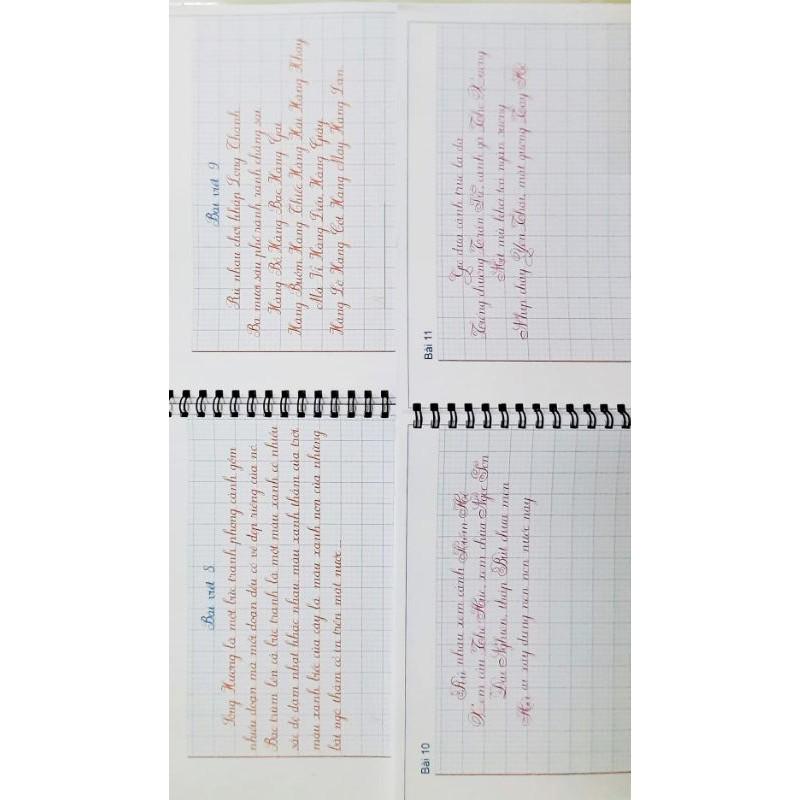 Bài viết 8
Sông Hương là một bức tranh phong cảnh gồm
nhiều đoạn mà mỗi đoạn đều có vẻ đẹp riêng của nó.
Bao trùm lên cả bức tranh là một màu xanh có nhiều
sắc độ đậm nhạt khác nhau: màu xanh thẳm của trời,
màu xanh biếc của cây lá, màu xanh non của những
bãi ngô, thảm cỏ in trên mặt nước...
Bài viết 9
Rủ nhau chơi khắp Long Thành
Ba mươi sáu phố rành rành chẳng sai
Hàng Bồ, Hàng Bạc, Hàng Gai
Hàng Buồm, Hàng Thiếc, Hàng Hài, Hàng Khay
Mã Vĩ, Hàng Điếu, Hàng Giầy
Hàng Lờ, Hàng Cót, Hàng Mây, Hàng Đàn
Bài 10
Rủ nhau xem cảnh Kiếm Hồ
Xem cầu Thê Húc, xem chùa Ngọc Sơn
Đài Nghiên, tháp Bút chưa mòn
Hỏi ai xây dựng nên non nước này
Bài 11
Gió đưa cành trúc la đà
Tiếng chuông Trấn Vũ, canh gà Thọ Xương
Mịt mù khói tỏa ngàn sương
Nhịp chày Yên Thái, mặt gương Tây Hồ